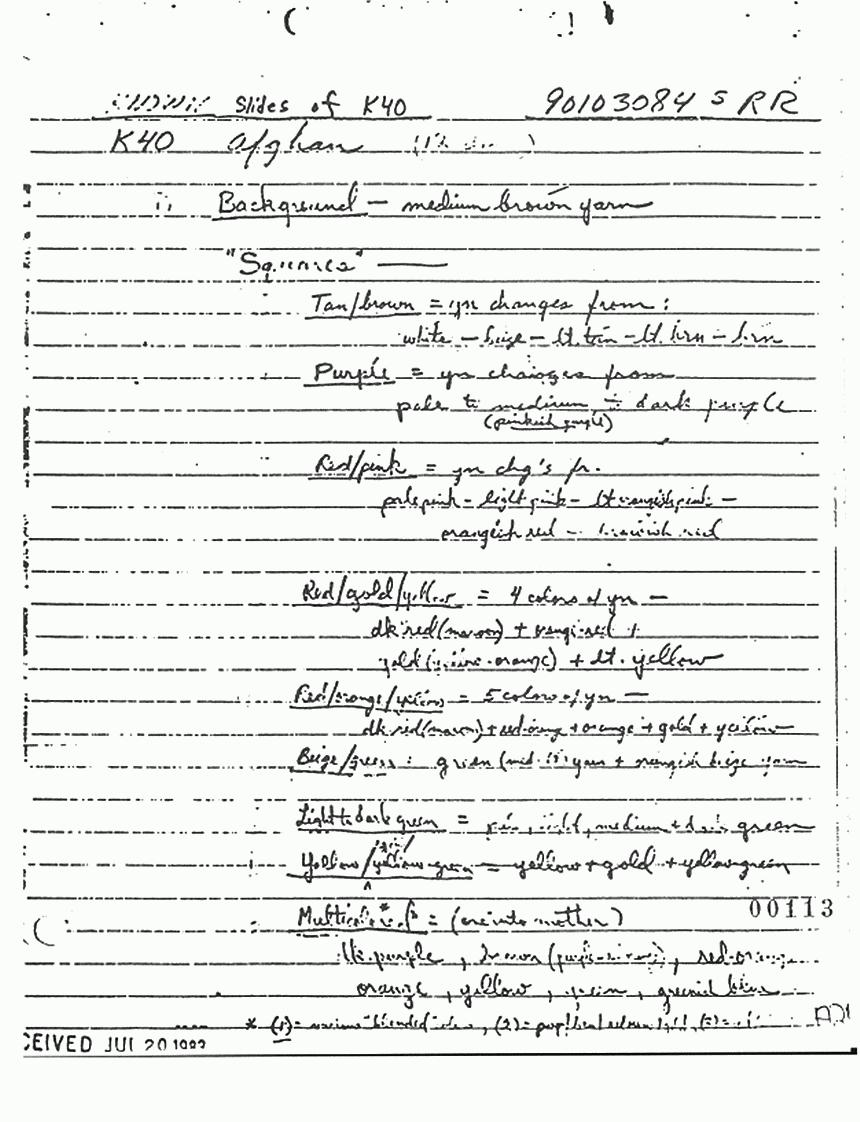 Slides of K40 90103084 S RR
K40 Afghan
Background — medium brown yarn
"Squares" —
Tan/brown = yn changes from:
white - beige - lt. tan - lt. brn - brn
Purple = yn changes from
pale to medium to dark purple
(pinkish purple)
Red/pink = yn chg's fr.
pale pink - light pink - lt orangish pink -
orangish red - brownish red
Red/gold/yellow = 4 colors of yn —
dk red (maroon) + orangi-red +
gold (orange) + lt. yellow
Red/orange/yellow = 5 colors of yn —
dk red (maroon) + red-orange + orange + gold + yellow
Beige/green: green yarn + orangish beige yarn
Light to dark green = light, medium + dark green
Yellow/yellow-green = yellow + gold + yellow green
00113
Multicolored* = (one into another)
purple, brown, red-orange
orange, yellow, green,
* (1) = "blended", (2) =
CEIVED JUL 20 1992